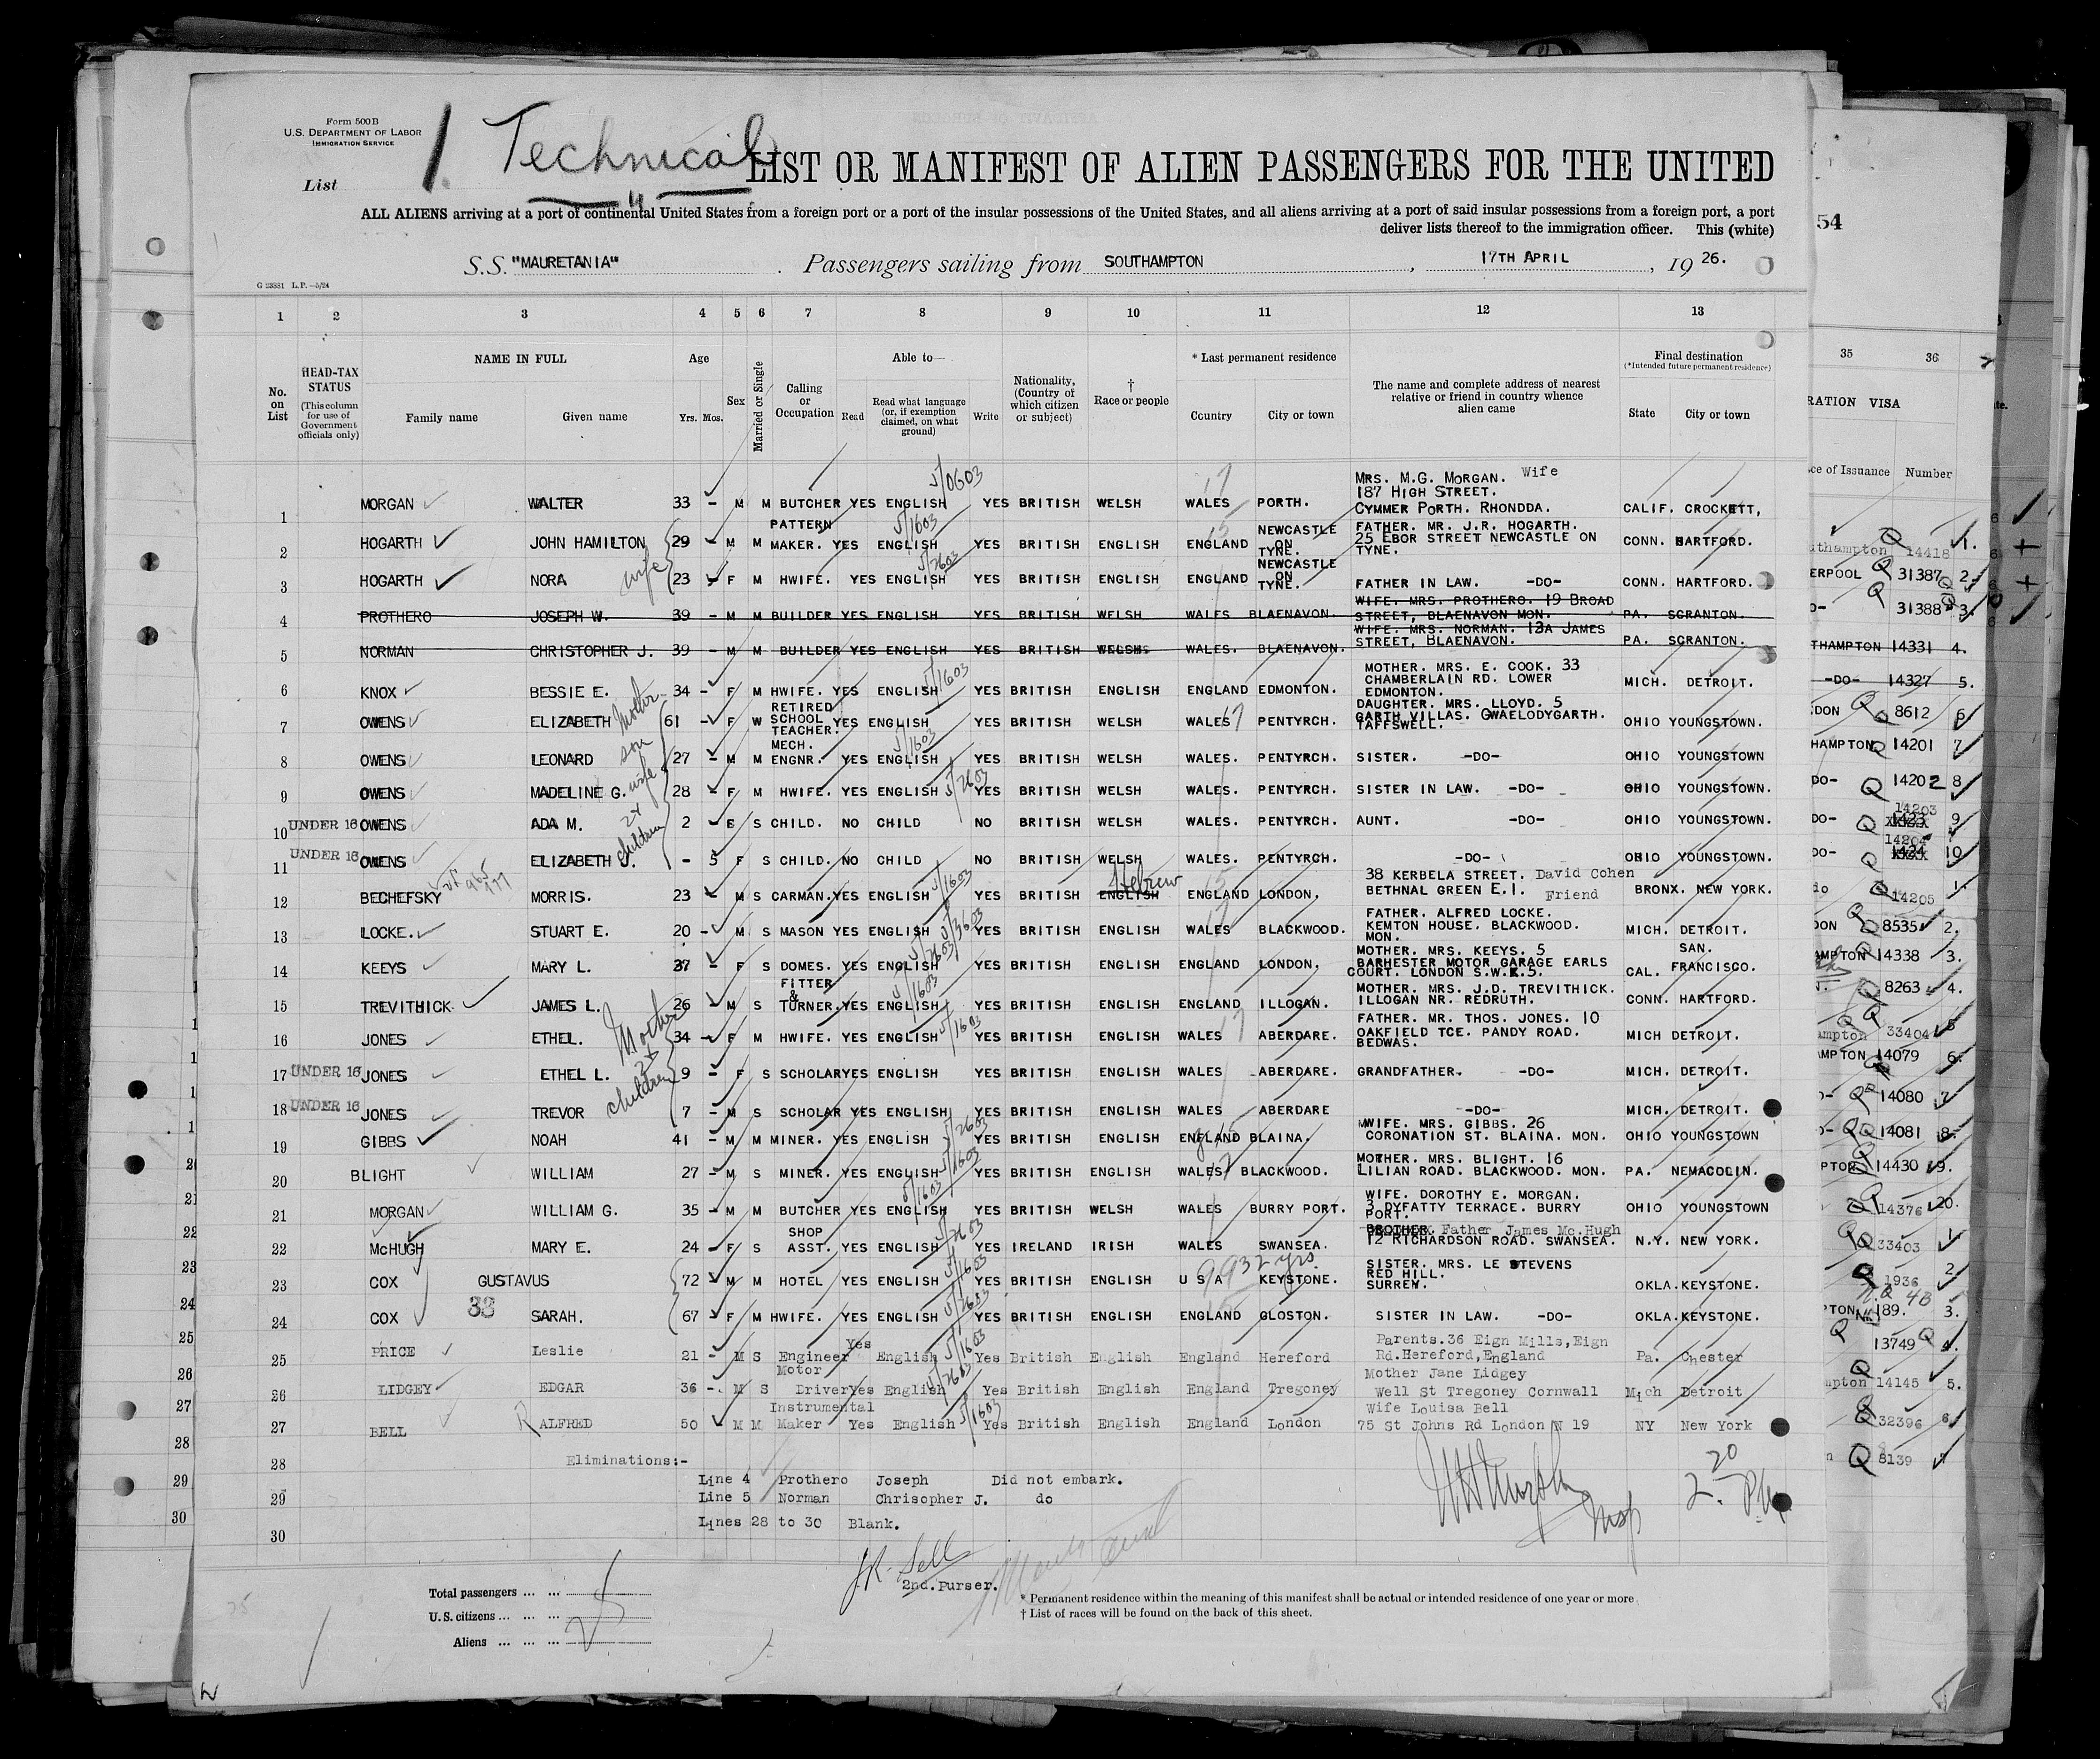 Form 500B
U.S. DEPARTMENT OF LABOR
IMMIGRATION SERVICE
List
1 Technical
LIST OR MANIFEST OF ALIEN PASSENGERS FOR THE UNITED
ALL ALIENS arriving at a port of continental United States from a foreign port or a port of the insular possessions of the United States, and all aliens arriving at a port of said insular possessions from a foreign port, a port
deliver lists thereof to the immigration officer. This (white)
54
S.S. "MAURETANIA". Passengers sailing from SOUTHAMPTON, 17TH APRIL, 19 26.
G 23881 L.P.—5/24
1 2 3 4 5 6 7 8 9 10 11 12 13 35 36
No. on List
HEAD-TAX STATUS (This column for use of Government officials only)
NAME IN FULL
Family name Given name
Age
Yrs. Mos.
Sex
Married or Single
Calling or Occupation
Able to—
Read Read what language (or, if exemption claimed, on what ground) Write
Nationality, (Country of which citizen or subject)
† Race or people
* Last permanent residence
Country City or town
The name and complete address of nearest relative or friend in country whence alien came
Final destination
(*Intended future permanent residence)
State City or town
RATION VISA
ce of Issuance Number
1 MORGAN WALTER 33 - M M BUTCHER YES ENGLISH YES BRITISH WELSH WALES PORTH. MRS. M.G. MORGAN. Wife 187 HIGH STREET. CYMMER PORTH. RHONDDA. CALIF. CROCKETT,
2 HOGARTH JOHN HAMILTON 29 - M M PATTERN MAKER. YES ENGLISH YES BRITISH ENGLISH ENGLAND NEWCASTLE ON TYNE. FATHER. MR. J.R. HOGARTH. 25 EBOR STREET NEWCASTLE ON TYNE. CONN. HARTFORD.
3 HOGARTH NORA wife 23 - F M HWIFE. YES ENGLISH YES BRITISH ENGLISH ENGLAND NEWCASTLE ON TYNE. FATHER IN LAW. -DO- CONN. HARTFORD.
4 PROTHERO JOSEPH W. 39 - M M BUILDER YES ENGLISH YES BRITISH WELSH WALES BLAENAVON. WIFE. MRS. PROTHERO. 19 BROAD STREET, BLAENAVON MON. PA. SCRANTON.
5 NORMAN CHRISTOPHER J. 39 - M M BUILDER YES ENGLISH YES BRITISH WELSH WALES. BLAENAVON. WIFE. MRS. NORMAN. 13A JAMES STREET, BLAENAVON. PA. SCRANTON.
6 KNOX BESSIE E. 34 - F M HWIFE. YES ENGLISH YES BRITISH ENGLISH ENGLAND EDMONTON. MOTHER. MRS. E. COOK. 33 CHAMBERLAIN RD. LOWER EDMONTON. MICH. DETROIT.
7 OWENS ELIZABETH Mother 61 - F W RETIRED SCHOOL TEACHER. YES ENGLISH YES BRITISH WELSH WALES PENTYRCH. DAUGHTER. MRS. LLOYD. 5 GARTH VILLAS. GWAELODYGARTH. TAFFSWELL. OHIO YOUNGSTOWN.
8 OWENS LEONARD son 27 - M M MECH. ENGNR. YES ENGLISH YES BRITISH WELSH WALES. PENTYRCH. SISTER. -DO- OHIO YOUNGSTOWN
9 OWENS MADELINE G. wife 28 - F M HWIFE. YES ENGLISH YES BRITISH WELSH WALES. PENTYRCH. SISTER IN LAW. -DO- OHIO YOUNGSTOWN.
10 UNDER 16 OWENS ADA M. 2 - F S CHILD. NO CHILD NO BRITISH WELSH WALES. PENTYRCH. AUNT. -DO- OHIO YOUNGSTOWN.
11 UNDER 16 OWENS ELIZABETH J. children - 5 F S CHILD. NO CHILD NO BRITISH WELSH WALES. PENTYRCH. -DO- OHIO YOUNGSTOWN.
12 BECHEFSKY MORRIS. 23 M S CARMAN. YES ENGLISH YES BRITISH ENGLISH Hebrew ENGLAND LONDON. 38 KERBELA STREET. David Cohen BETHNAL GREEN E.1. Friend BRONX. NEW YORK.
13 LOCKE. STUART E. 20 - M S MASON YES ENGLISH YES BRITISH ENGLISH WALES BLACKWOOD. FATHER. ALFRED LOCKE. KEMTON HOUSE. BLACKWOOD. MON. MICH. DETROIT.
14 KEEYS MARY L. 37 - F S DOMES. YES ENGLISH YES BRITISH ENGLISH ENGLAND LONDON. MOTHER. MRS. KEEYS. 5 BARHESTER MOTOR GARAGE EARLS COURT. LONDON S.W.5. CAL. SAN. FRANCISCO.
15 TREVITHICK JAMES L. 26 - M S FITTER & TURNER. YES ENGLISH YES BRITISH ENGLISH ENGLAND ILLOGAN. MOTHER. MRS. J.D. TREVITHICK. ILLOGAN NR. REDRUTH. CONN. HARTFORD.
16 JONES ETHEL. Mother 34 - F M HWIFE. YES ENGLISH YES BRITISH ENGLISH WALES ABERDARE. FATHER. MR. THOS. JONES. 10 OAKFIELD TCE. PANDY ROAD. BEDWAS. MICH DETROIT.
17 UNDER 16 JONES ETHEL L. 9 - F S SCHOLAR YES ENGLISH YES BRITISH ENGLISH WALES ABERDARE. GRANDFATHER. -DO- MICH. DETROIT.
18 UNDER 16 JONES TREVOR children 7 - M S SCHOLAR YES ENGLISH YES BRITISH ENGLISH WALES ABERDARE -DO- MICH. DETROIT.
19 GIBBS NOAH 41 - M M MINER. YES ENGLISH YES BRITISH ENGLISH ENGLAND BLAINA. WIFE. MRS. GIBBS. 26 CORONATION ST. BLAINA. MON. OHIO YOUNGSTOWN
20 BLIGHT WILLIAM 27 - M S MINER. YES ENGLISH YES BRITISH ENGLISH WALES BLACKWOOD. MOTHER. MRS. BLIGHT. 16 LILIAN ROAD. BLACKWOOD. MON. PA. NEMACOLIN.
21 MORGAN WILLIAM G. 35 - M M BUTCHER YES ENGLISH YES BRITISH WELSH WALES BURRY PORT. WIFE. DOROTHY E. MORGAN. 3 DYFATTY TERRACE. BURRY PORT. OHIO YOUNGSTOWN
22 McHUGH MARY E. 24 - F S SHOP ASST. YES ENGLISH YES IRELAND IRISH WALES SWANSEA. BROTHER. Father James Mc.Hugh 12 RICHARDSON ROAD. SWANSEA. N.Y. NEW YORK.
23 COX GUSTAVUS 72 M M HOTEL YES ENGLISH YES BRITISH ENGLISH U S A KEYSTONE. 32 yrs. SISTER. MRS. LE STEVENS RED HILL. SURREY. OKLA. KEYSTONE.
24 COX 33 SARAH. 67 F M HWIFE. YES ENGLISH YES BRITISH ENGLISH ENGLAND GLOSTON. SISTER IN LAW. -DO- OKLA. KEYSTONE.
25 PRICE Leslie 21 - M S Engineer Yes English Yes British English England Hereford Parents.36 Eign Mills,Eign Rd.Hereford,England Pa. Chester
26 LIDGEY EDGAR 36 - M S Motor Driver Yes English Yes British English England Tregoney Mother Jane Lidgey Well St Tregoney Cornwall Mich Detroit
27 BELL ALFRED 50 M M Instrumental Maker Yes English Yes British English England London Wife Louisa Bell 75 St Johns Rd London N 19 NY New York
28 Eliminations:-
Line 4 Prothero Joseph Did not embark.
29 Line 5 Norman Chrisopher J. do
Lines 28 to 30 Blank.
30
2.20 PM
2nd.Purser.
Total passengers ... ...
U.S. citizens ... ... ...
Aliens ... ... ...
25
* Permanent residence within the meaning of this manifest shall be actual or intended residence of one year or more
† List of races will be found on the back of this sheet.
uthampton 14418 1.
ERPOOL 31387 2.
31388 3.
THAMPTON 14331 4.
-DO- 14327 5.
DON 8612 6
HAMPTON 14201 7
DO- 14202 8
DO- 14203 9
DO- 14204 10
do 14205 1.
DON 8535 2.
AMPTON 14338 3.
N. 8263 4.
ampton 33404 5
AMPTON 14079 6.
O- 14080 7
O- 14081 8.
PTON 14430 9.
14376 20.
33403
1936 2.
PTON 189. 3.
13749 4.
mpton 14145 5.
32396 6
8139